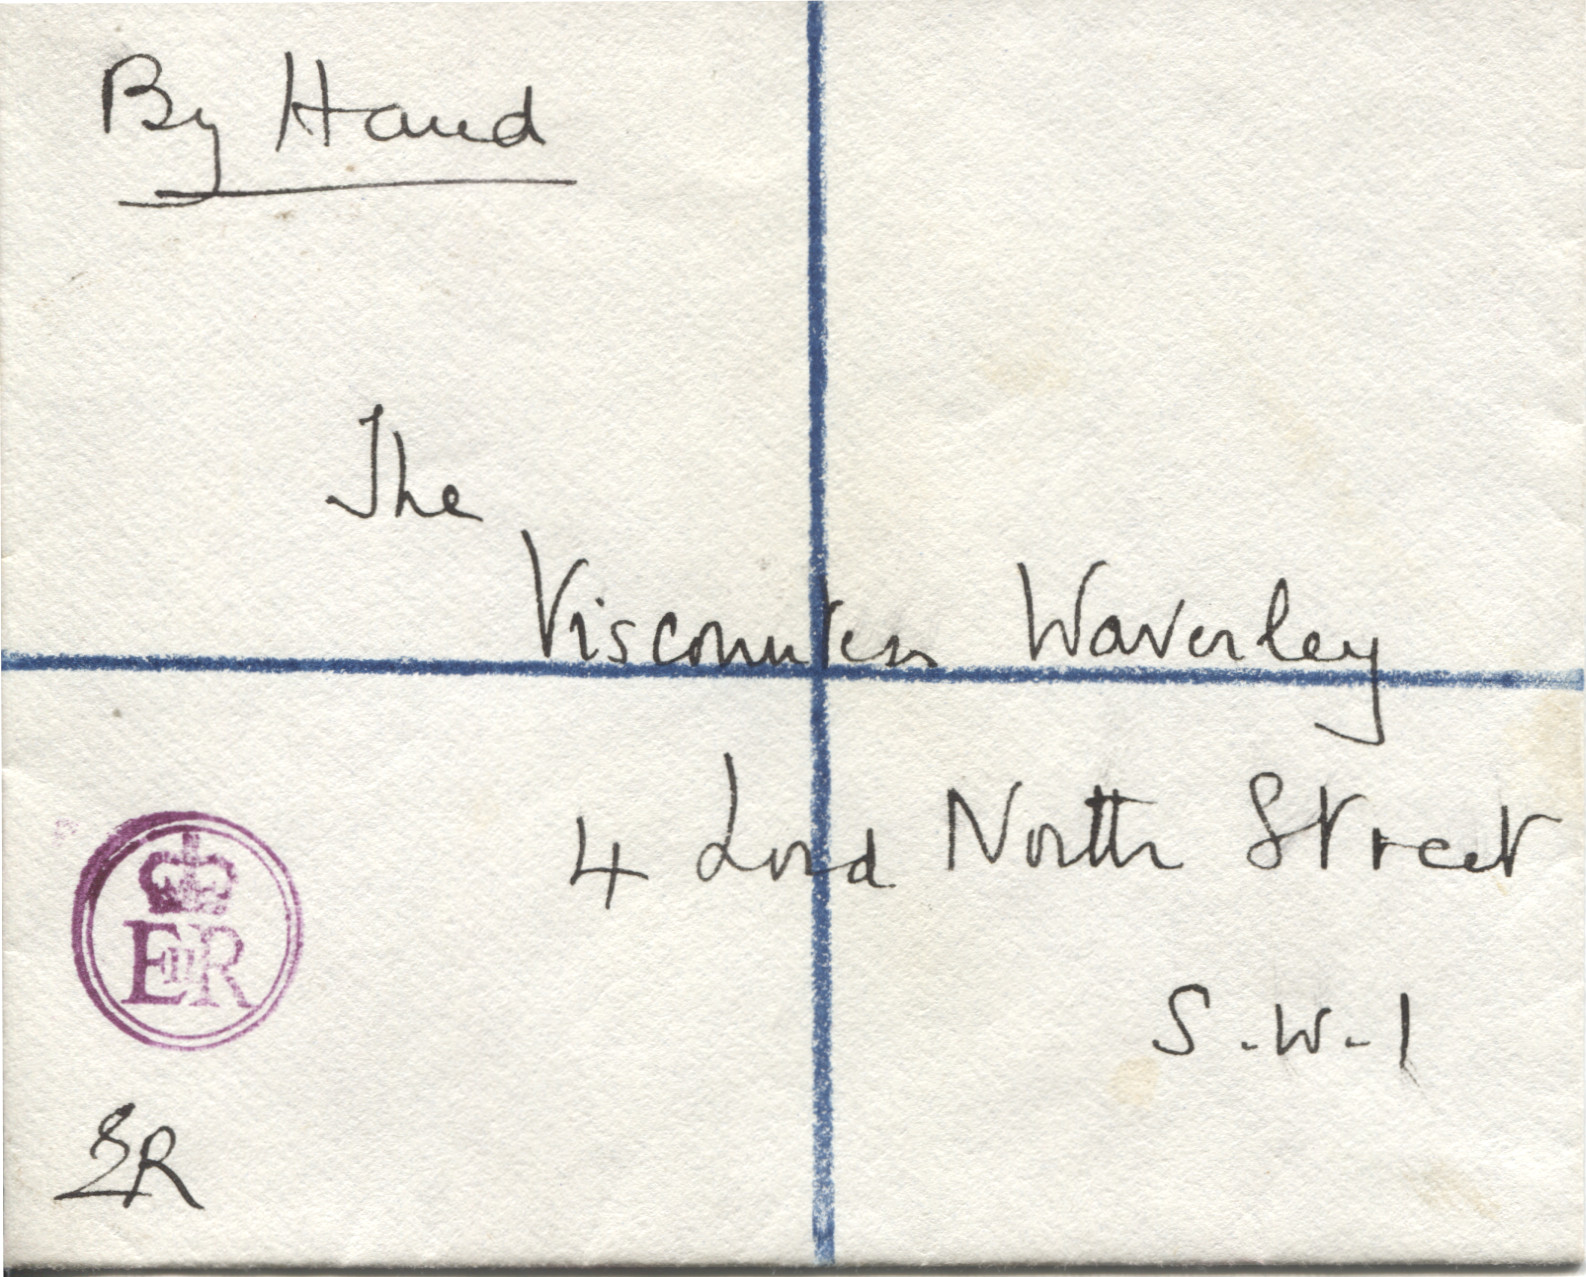 By Hand
The
Viscountess Waverley
4 Lord North Street
S.W.1
EIIR
ER